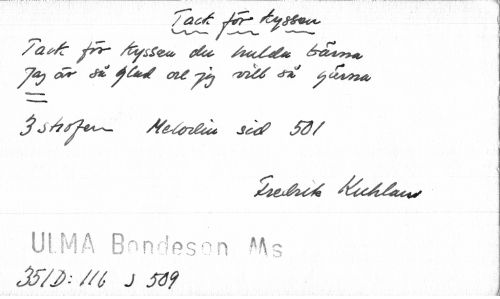 Tack för kyssen
Tack för kyssen du hulda tärna
Jag är så glad och jag vill så gärna
3 strofer Melodin sid 501
Fredrik Kuhlau
ULMA Bondeson Ms
351D: 116 s 509